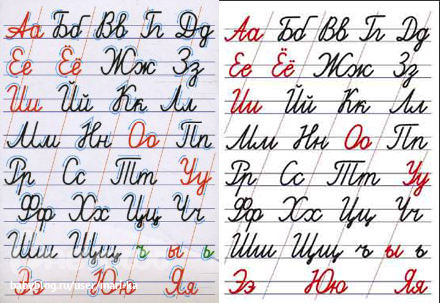 Аа Бб Вв Гг Дд
Ее Ёё Жж Зз
Ии Йй Кк Лл
Мм Нн Оо Пп
Рр Сс Тт Уу
Фф Хх Цц Чч
Шш Щщ ъ ы ь
Ээ Юю Яя
Аа Бб Вв Гг Дд
Ее Ёё Жж Зз
Ии Йй Кк Лл
Мм Нн Оо Пп
Рр Сс Тт Уу
Фф Хх Цц Чч
Шш Щщ ъ ы ь
Ээ Юю Яя